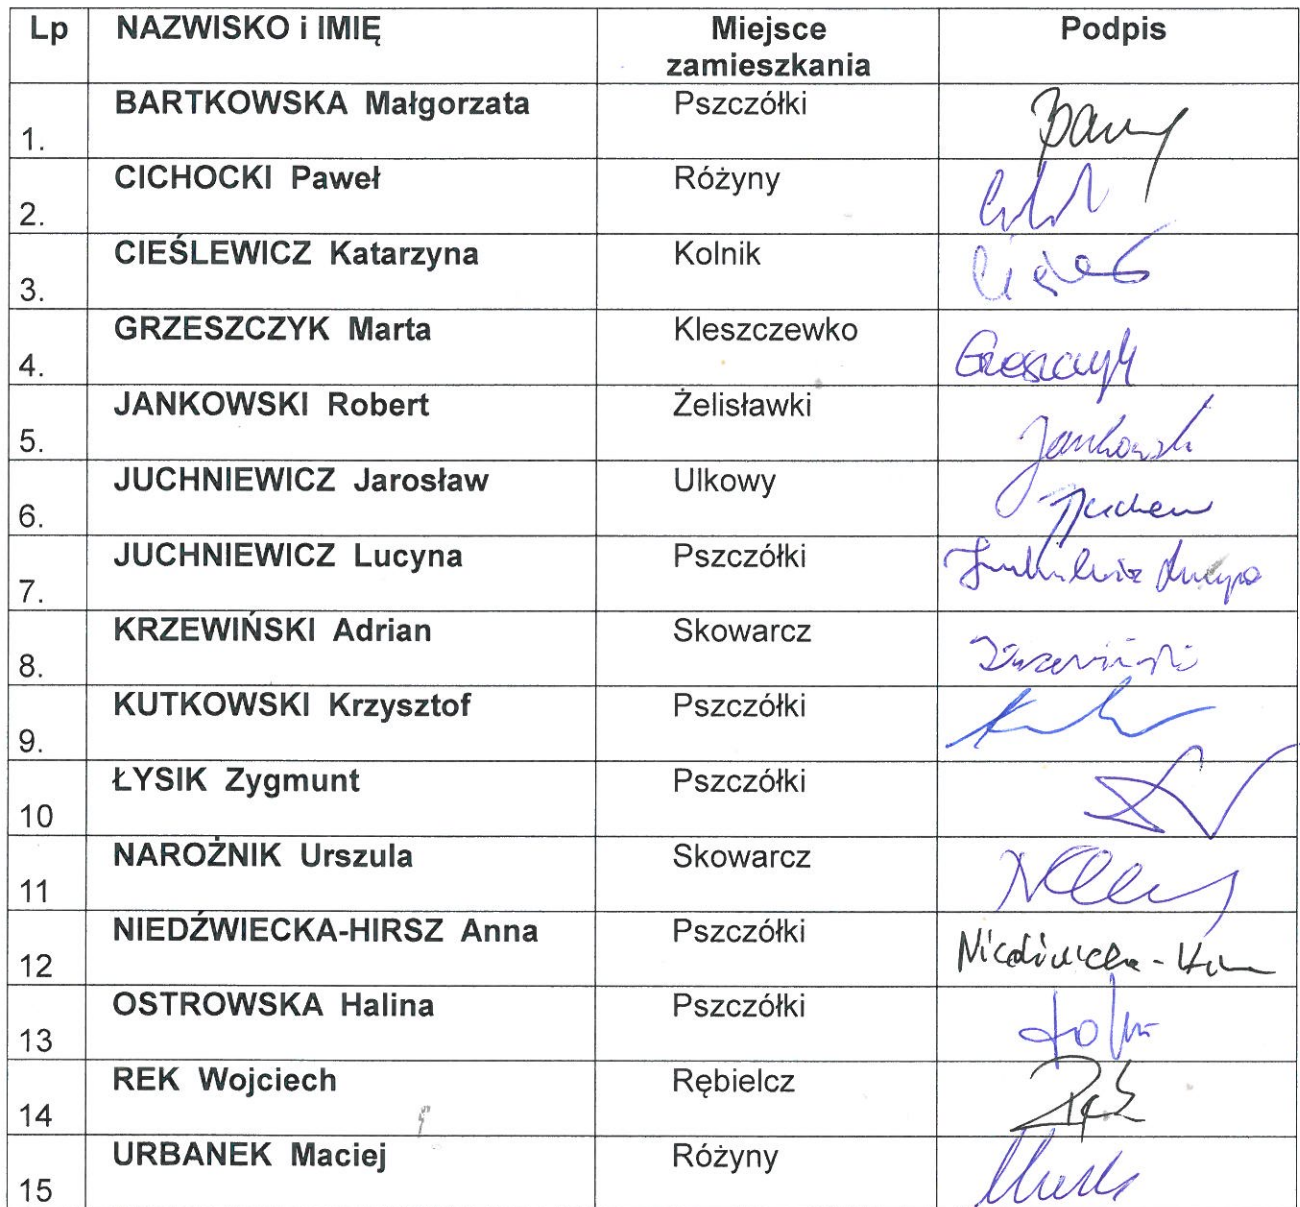 Lp NAZWISKO i IMIĘ Miejsce zamieszkania Podpis
1. BARTKOWSKA Małgorzata Pszczółki
2. CICHOCKI Paweł Różyny
3. CIEŚLEWICZ Katarzyna Kolnik
4. GRZESZCZYK Marta Kleszczewko
5. JANKOWSKI Robert Żelisławki
6. JUCHNIEWICZ Jarosław Ulkowy
7. JUCHNIEWICZ Lucyna Pszczółki
8. KRZEWIŃSKI Adrian Skowarcz
9. KUTKOWSKI Krzysztof Pszczółki
10 ŁYSIK Zygmunt Pszczółki
11 NAROŻNIK Urszula Skowarcz
12 NIEDŹWIECKA-HIRSZ Anna Pszczółki
13 OSTROWSKA Halina Pszczółki
14 REK Wojciech Rębielcz
15 URBANEK Maciej Różyny